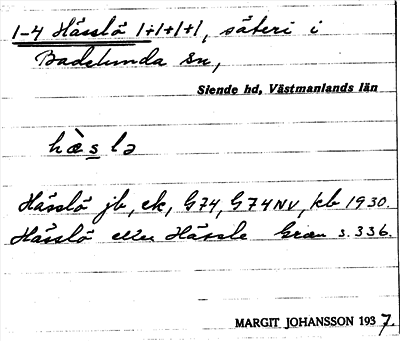 1-4 Hässlö 1+1+1+1, säteri i
Badelunda sn,
Siende hd, Västmanlands län
hæ̀s̲lə
Hässlö jb, ek, G74, G74NV, kb 1930.
Hässlö eller Hässle Grau s. 336.
MARGIT JOHANSSON 1937.